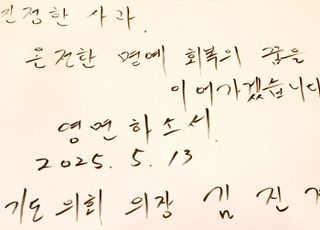 진정한 사과.
온전한 명예 회복의 꿈을
이어가겠습니다
영면하소서.
2025. 5. 13
기도의회 의장 김진